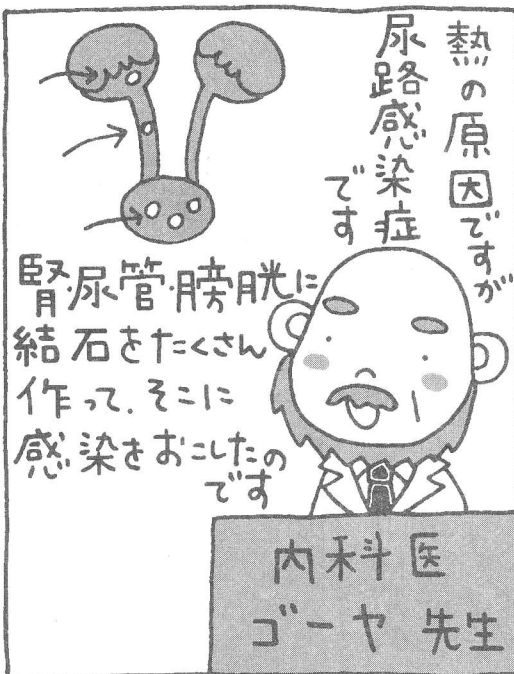 熱の原因ですが
尿路感染症
です
腎・尿管・膀胱に
結石をたくさん
作って、そこに
感染をおこしたの
です
内科医
ゴーヤ先生